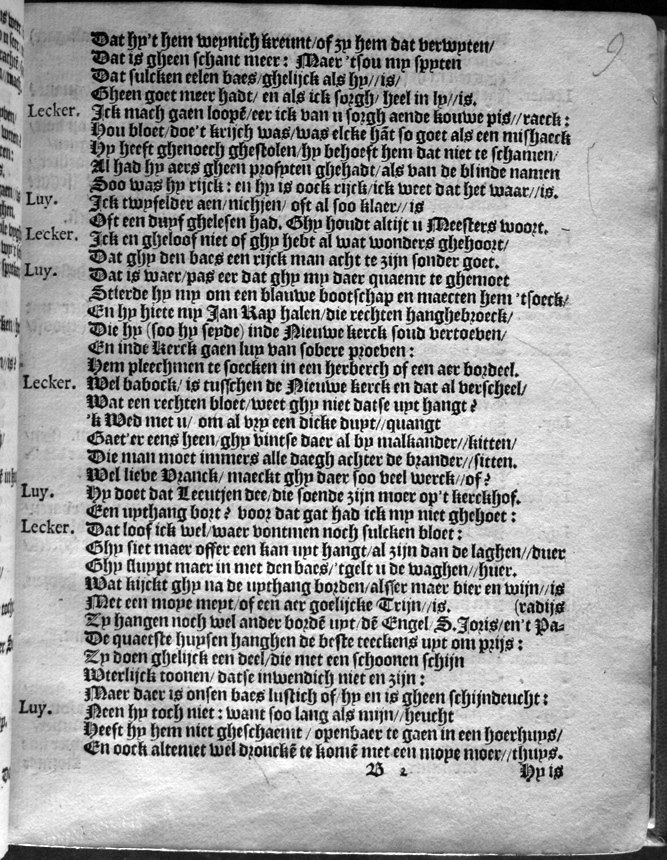 9
Dat hy't hem weynich kreunt/of zy hem dat verwyten/
Dat is gheen schant meer: Maer 'tsou my spyten
Dat sulcken eelen baes/ghelijck als hy//is/
Gheen goet meer hadt/ en als ick sorgh/ heel in ly//is.
Lecker. Ick mach gaen loopẽ/eer ick van u sorgh aende kouwe pis//raeck:
Hou bloet/doe't krijch was/was elcke hãt so goet als een mishaeck
Hy heeft ghenoech ghestolen/hy behoeft hem dat niet te schamen/
Al had hy aers gheen profyten ghehadt/als van de blinde namen
Soo was hy rijck: en hy is oock rijck/ick weet dat het waar//is.
Luy. Ick twyfelder aen/nichjen/ oft al soo klaer//is
Oft een duyf ghelesen had. Ghy houdt altijt u Meesters woort.
Lecker. Ick en gheloof niet of ghy hebt al wat wonders ghehoort/
Dat ghy den baes een rijck man acht te zijn sonder goet.
Luy. Dat is waer/pas eer dat ghy my daer quaemt te ghemoet
Stierde hy my om een blauwe bootschap en maecten hem 'tsoeck/
En hy hiete my Jan Rap halen/die rechten hanghebroeck/
Die hy (soo hy seyde) inde Nieuwe kerck soud vertoeven/
En inde Kerck gaen luy van sobere proeven:
Hem pleechmen te soecken in een herberch of een aer bordeel.
Lecker. Wel babock/ is tusschen de Nieuwe kerck en dat al verscheel/
Wat een rechten bloet/weet ghy niet datse uyt hangt?
'k Wed met u/ om al vry een dicke duyt//quangt
Gaet'er eens heen/ghy vintse daer al by malkander//kitten/
Die man moet immers alle daegh achter de brander//sitten.
Wel lieve Vranck/ maeckt ghy daer soo veel werck//of?
Luy. Hy doet dat Leeutjen dee/die soende zijn moer op't kerckhof.
Een uythang bort? voor dat gat had ick my niet ghehoet:
Lecker. Dat loof ick wel/waer vontmen noch sulcken bloet:
Ghy siet maer offer een kan uyt hangt/al zijn dan de laghen//duer
Ghy sluypt maer in met den baes/'tgelt u de waghen//huer.
Wat kijckt ghy na de uythang borden/alsser maer bier en wijn//is
Met een moye meyt/of een aer goelijcke Trijn//is. (radijs
Zy hangen noch wel ander bordẽ uyt/dẽ Engel/S.Joris/en't Pa-
De quaetste huysen hanghen de beste teeckens uyt om prijs:
Zy doen ghelijck een deel/die met een schoonen schijn
Wterlijck toonen/ datse inwendich niet en zijn:
Maer daer is onsen baes lustich of/hy en is gheen schijndeucht:
Luy. Neen hy toch niet: want soo lang als mijn//heucht
Heeft hy hem niet gheschaemt / openbaer te gaen in een hoerhuys/
En oock altemet wel dronckẽ te komẽ met een moye moer//thuys.
B 2 Hy is